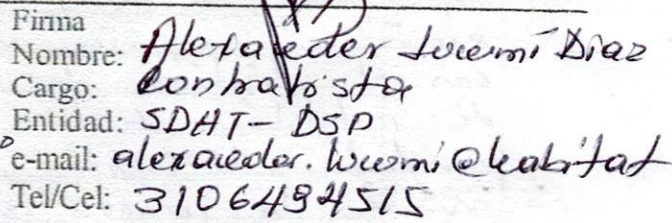 Firma
Nombre: Alexander Lucumí Diaz
Cargo: Contratista
Entidad: SDHT - DSP
e-mail: alexander.lucumi@habitat
Tel/Cel: 3106494515